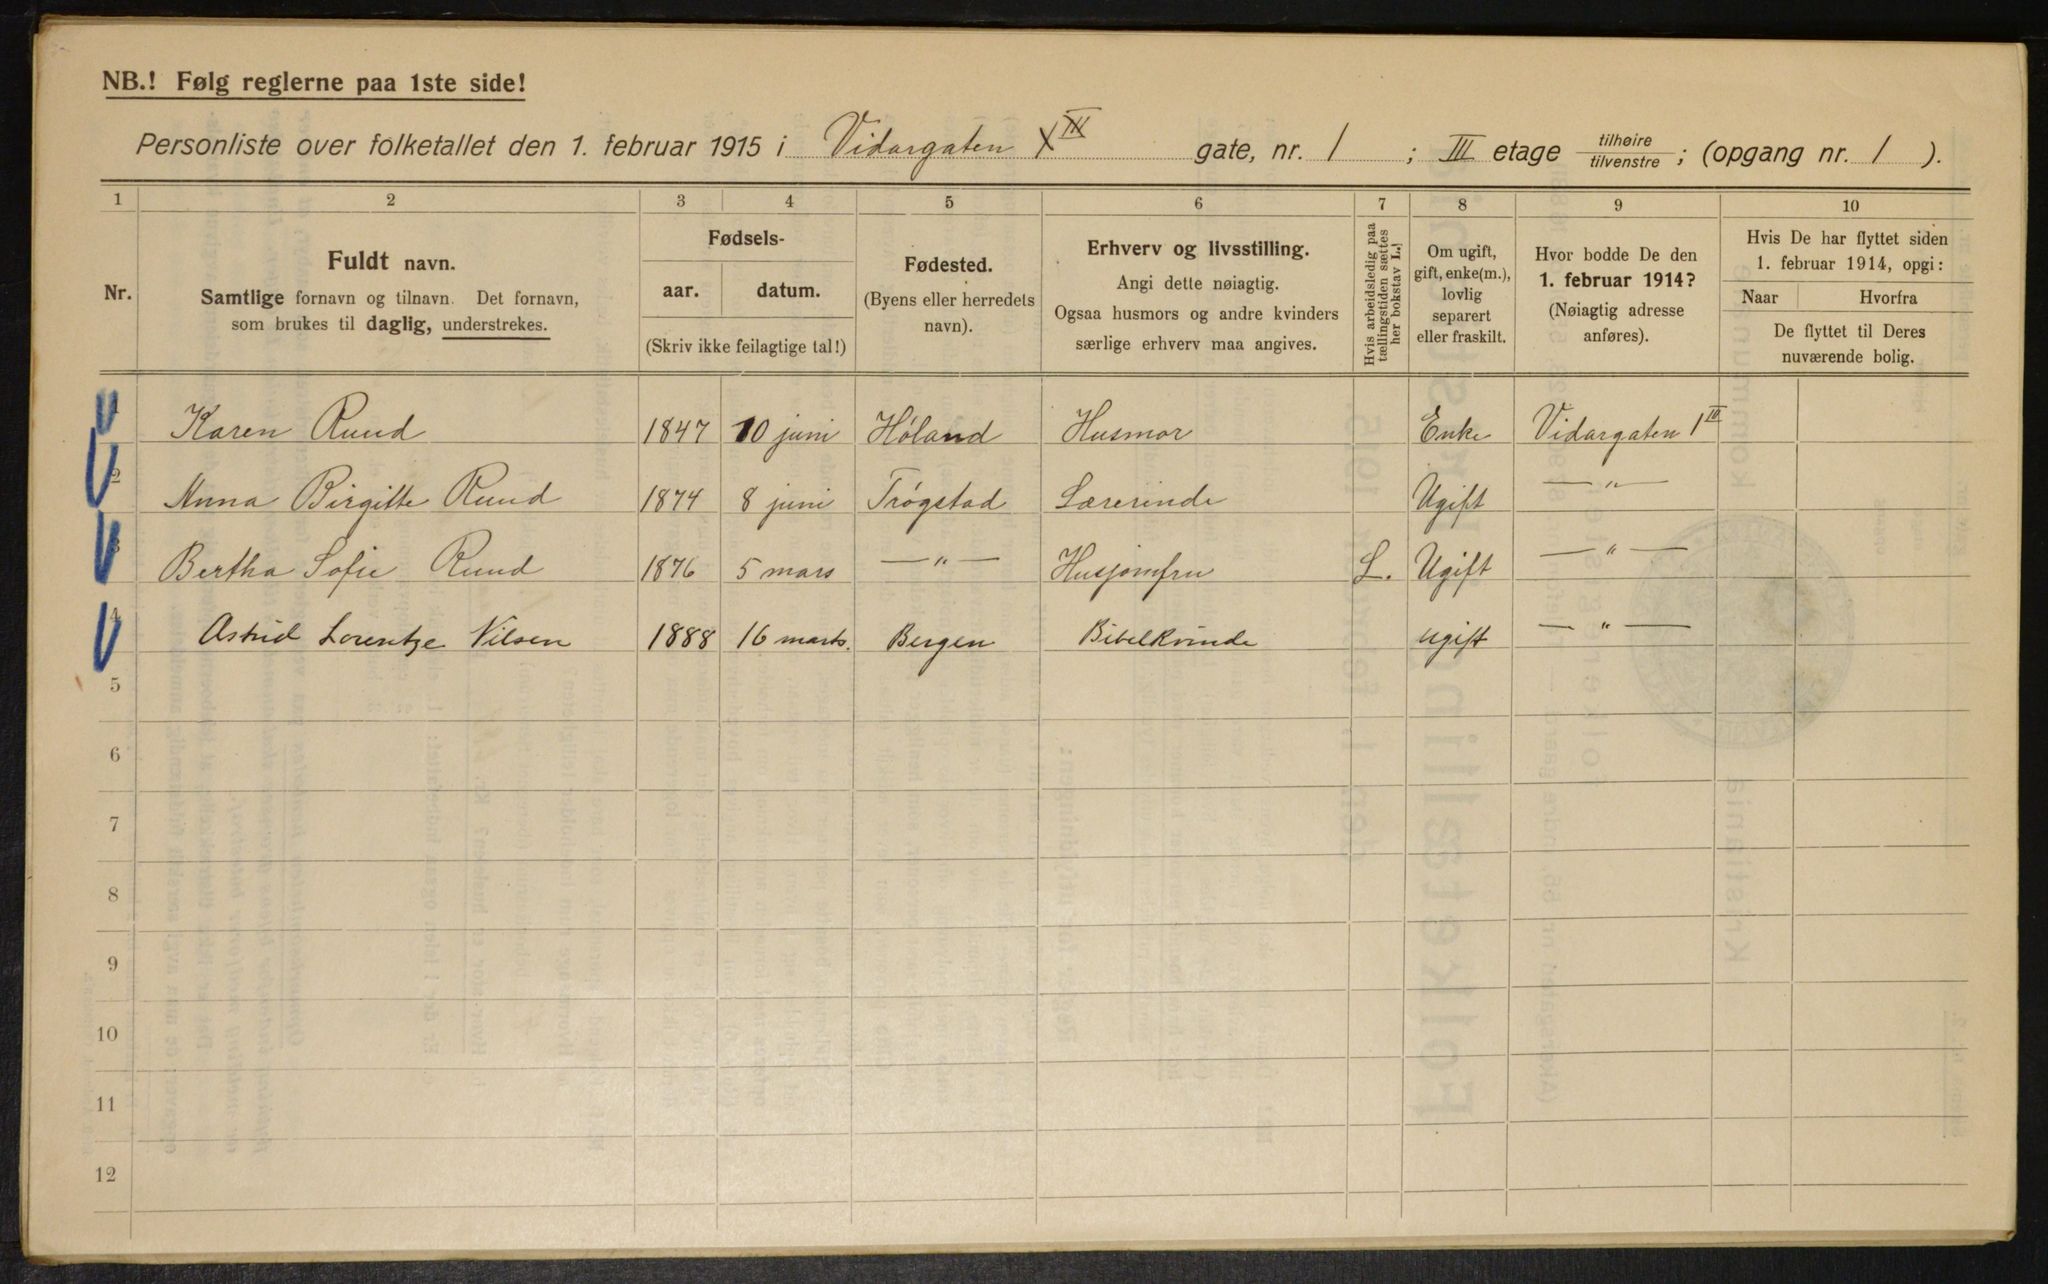 NB.! Følg reglerne paa 1ste side!
Personliste over folketallet den 1. februar 1915 i Vidargaten gate, nr. 1 ; III etage tilhøire/tilvenstre ; (opgang nr. 1 ).
1 2 3 4 5 6 7 8 9 10
Nr.
Fuldt navn.
Samtlige fornavn og tilnavn. Det fornavn,
som brukes til daglig, understrekes.
Fødsels-
aar. datum.
(Skriv ikke feilagtige tal!)
Fødested.
(Byens eller herredets
navn).
Erhverv og livsstilling.
Angi dette nøiagtig.
Ogsaa husmors og andre kvinders
særlige erhverv maa angives.
Hvis arbeidsledig paa
tællingstiden sættes
her bokstav L.!
Om ugift,
gift, enke(m.),
lovlig
separert
eller fraskilt.
Hvor bodde De den
1. februar 1914?
(Nøiagtig adresse
anføres).
Hvis De har flyttet siden
1. februar 1914, opgi:
Naar Hvorfra
De flyttet til Deres
nuværende bolig.
1 Karen Ruud 1847 10 juni Høland Husmor Enke Vidargaten 1 III
2 Anna Birgitte Ruud 1874 8 juni Trøgstad Lærerinde Ugift — " —
3 Bertha Sofie Ruud 1876 5 mars — " — Husjomfru L. Ugift — " —
4 Astrid Lorentze Nilsen 1888 16 marts. Bergen Bibelkvinde ugift — " —
5
6
7
8
9
10
11
12